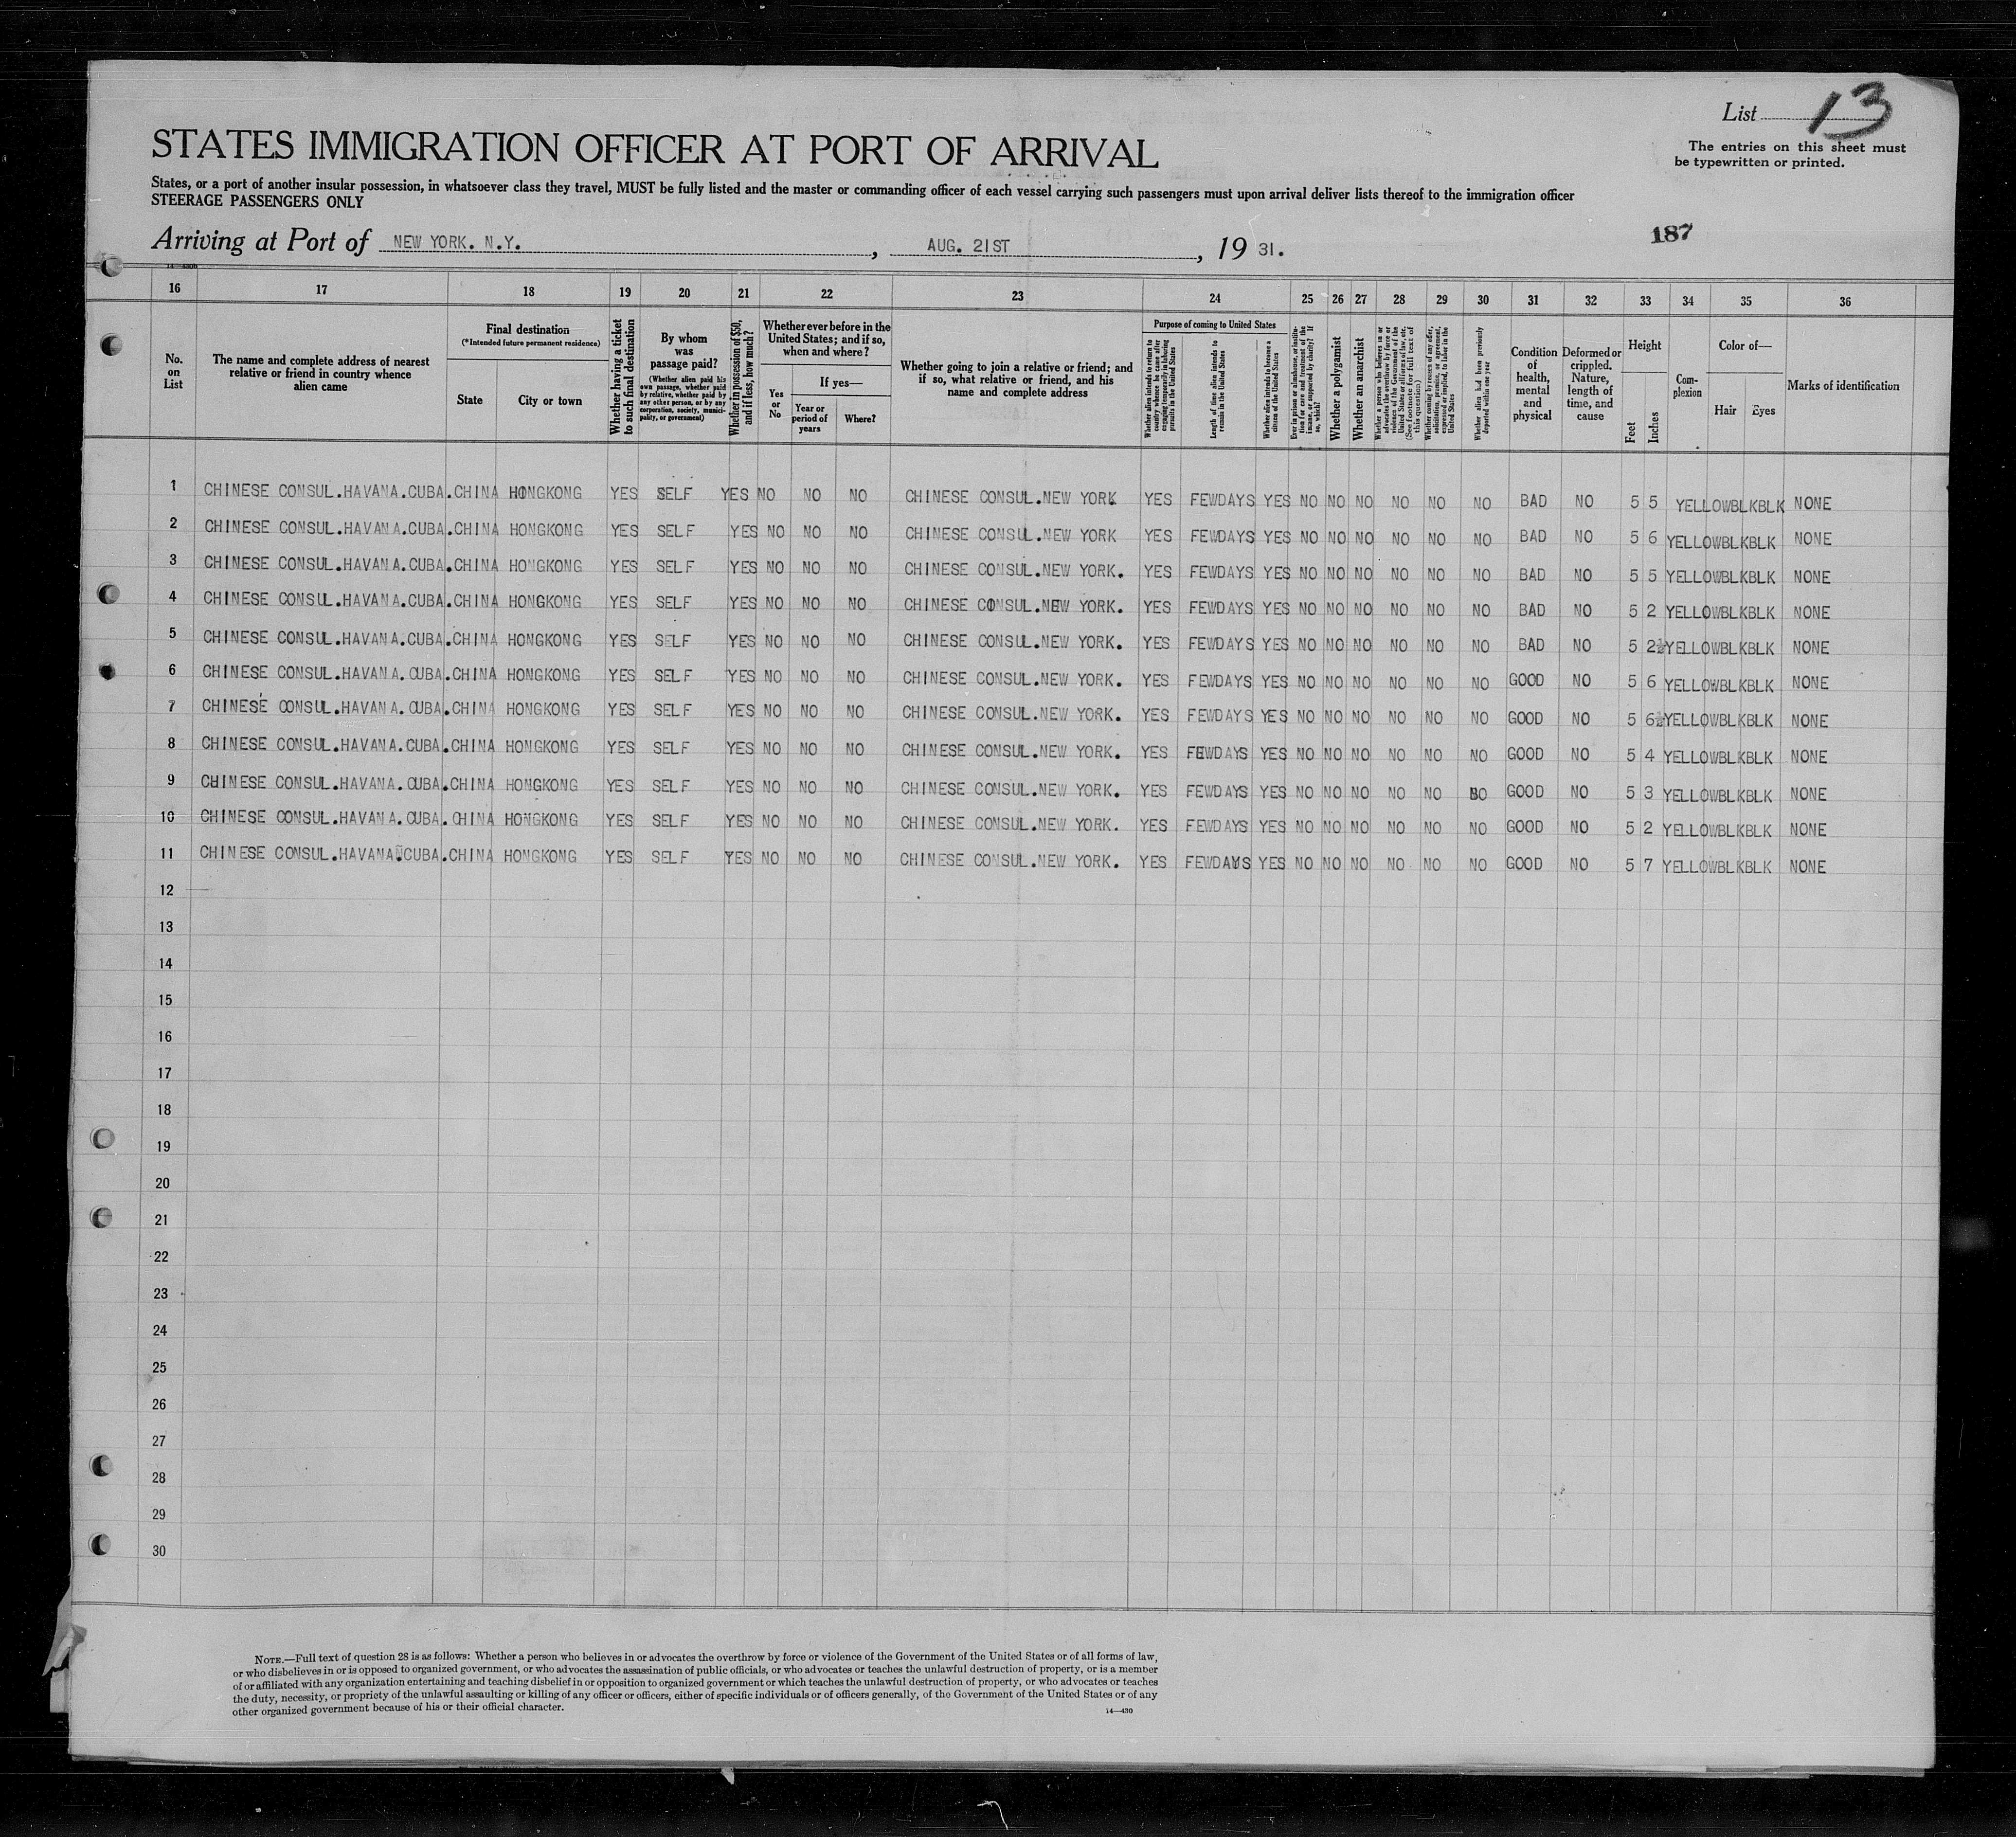 List 13
The entries on this sheet must
be typewritten or printed.
STATES IMMIGRATION OFFICER AT PORT OF ARRIVAL
States, or a port of another insular possession, in whatsoever class they travel, MUST be fully listed and the master or commanding officer of each vessel carrying such passengers must upon arrival deliver lists thereof to the immigration officer
STEERAGE PASSENGERS ONLY
187
Arriving at Port of NEW YORK. N.Y. , AUG. 21ST , 19 31.
16 17 18 19 20 21 22 23 24 25 26 27 28 29 30 31 32 33 34 35 36
No. on List
The name and complete address of nearest relative or friend in country whence alien came
Final destination
(*Intended future permanent residence)
State
City or town
Whether having a ticket to such final destination
By whom was passage paid?
(Whether alien paid his own passage, whether paid by relative, whether paid by any other person, or by any corporation, society, municipality, or government)
Whether in possession of $50, and if less, how much?
Whether ever before in the United States; and if so, when and where?
Yes or No
If yes—
Year or period of years
Where?
Whether going to join a relative or friend; and if so, what relative or friend, and his name and complete address
Purpose of coming to United States
Whether alien intends to return to country whence he came after engaging temporarily in laboring pursuits in the United States
Length of time alien intends to remain in the United States
Whether alien intends to become a citizen of the United States
Ever in prison or almshouse, or institution for care and treatment of the insane, or supported by charity? If so, which?
Whether a polygamist
Whether an anarchist
Whether a person who believes in or advocates the overthrow by force or violence of the Government of the United States or all forms of law, etc. (See footnote for full text of this question)
Whether coming by reason of any offer, solicitation, promise, or agreement, expressed or implied, to labor in the United States
Whether alien had been previously deported within one year
Condition of health, mental and physical
Deformed or crippled. Nature, length of time, and cause
Height
Feet
Inches
Complexion
Color of—
Hair
Eyes
Marks of identification
1 CHINESE CONSUL.HAVANA.CUBA.CHINA HONGKONG YES SELF YES NO NO NO CHINESE CONSUL.NEW YORK YES FEWDAYS YES NO NO NO NO NO NO BAD NO 5 5 YELLOWBLKBLK NONE
2 CHINESE CONSUL.HAVANA.CUBA.CHINA HONGKONG YES SELF YES NO NO NO CHINESE CONSUL.NEW YORK YES FEWDAYS YES NO NO NO NO NO NO BAD NO 5 6 YELLOWBLKBLK NONE
3 CHINESE CONSUL.HAVANA.CUBA.CHINA HONGKONG YES SELF YES NO NO NO CHINESE CONSUL.NEW YORK. YES FEWDAYS YES NO NO NO NO NO NO BAD NO 5 5 YELLOWBLKBLK NONE
4 CHINESE CONSUL.HAVANA.CUBA.CHINA HONGKONG YES SELF YES NO NO NO CHINESE CONSUL.NEW YORK. YES FEWDAYS YES NO NO NO NO NO NO BAD NO 5 2 YELLOWBLKBLK NONE
5 CHINESE CONSUL.HAVANA.CUBA.CHINA HONGKONG YES SELF YES NO NO NO CHINESE CONSUL.NEW YORK. YES FEWDAYS YES NO NO NO NO NO NO BAD NO 5 2½YELLOWBLKBLK NONE
6 CHINESE CONSUL.HAVANA.CUBA.CHINA HONGKONG YES SELF YES NO NO NO CHINESE CONSUL.NEW YORK. YES FEWDAYS YES NO NO NO NO NO NO GOOD NO 5 6 YELLOWBLKBLK NONE
7 CHINESE CONSUL.HAVANA.CUBA.CHINA HONGKONG YES SELF YES NO NO NO CHINESE CONSUL.NEW YORK. YES FEWDAYS YES NO NO NO NO NO NO GOOD NO 5 6½YELLOWBLKBLK NONE
8 CHINESE CONSUL.HAVANA.CUBA.CHINA HONGKONG YES SELF YES NO NO NO CHINESE CONSUL.NEW YORK. YES FEWDAYS YES NO NO NO NO NO NO GOOD NO 5 4 YELLOWBLKBLK NONE
9 CHINESE CONSUL.HAVANA.CUBA.CHINA HONGKONG YES SELF YES NO NO NO CHINESE CONSUL.NEW YORK. YES FEWDAYS YES NO NO NO NO NO NO GOOD NO 5 3 YELLOWBLKBLK NONE
10 CHINESE CONSUL.HAVANA.CUBA.CHINA HONGKONG YES SELF YES NO NO NO CHINESE CONSUL.NEW YORK. YES FEWDAYS YES NO NO NO NO NO NO GOOD NO 5 2 YELLOWBLKBLK NONE
11 CHINESE CONSUL.HAVANA.CUBA.CHINA HONGKONG YES SELF YES NO NO NO CHINESE CONSUL.NEW YORK. YES FEWDAYS YES NO NO NO NO NO NO GOOD NO 5 7 YELLOWBLKBLK NONE
12
13
14
15
16
17
18
19
20
21
22
23
24
25
26
27
28
29
30
NOTE.—Full text of question 28 is as follows: Whether a person who believes in or advocates the overthrow by force or violence of the Government of the United States or of all forms of law,
or who disbelieves in or is opposed to organized government, or who advocates the assassination of public officials, or who advocates or teaches the unlawful destruction of property, or is a member
of or affiliated with any organization entertaining and teaching disbelief in or opposition to organized government or which teaches the unlawful destruction of property, or who advocates or teaches
the duty, necessity, or propriety of the unlawful assaulting or killing of any officer or officers, either of specific individuals or of officers generally, of the Government of the United States or of any
other organized government because of his or their official character.
14—430